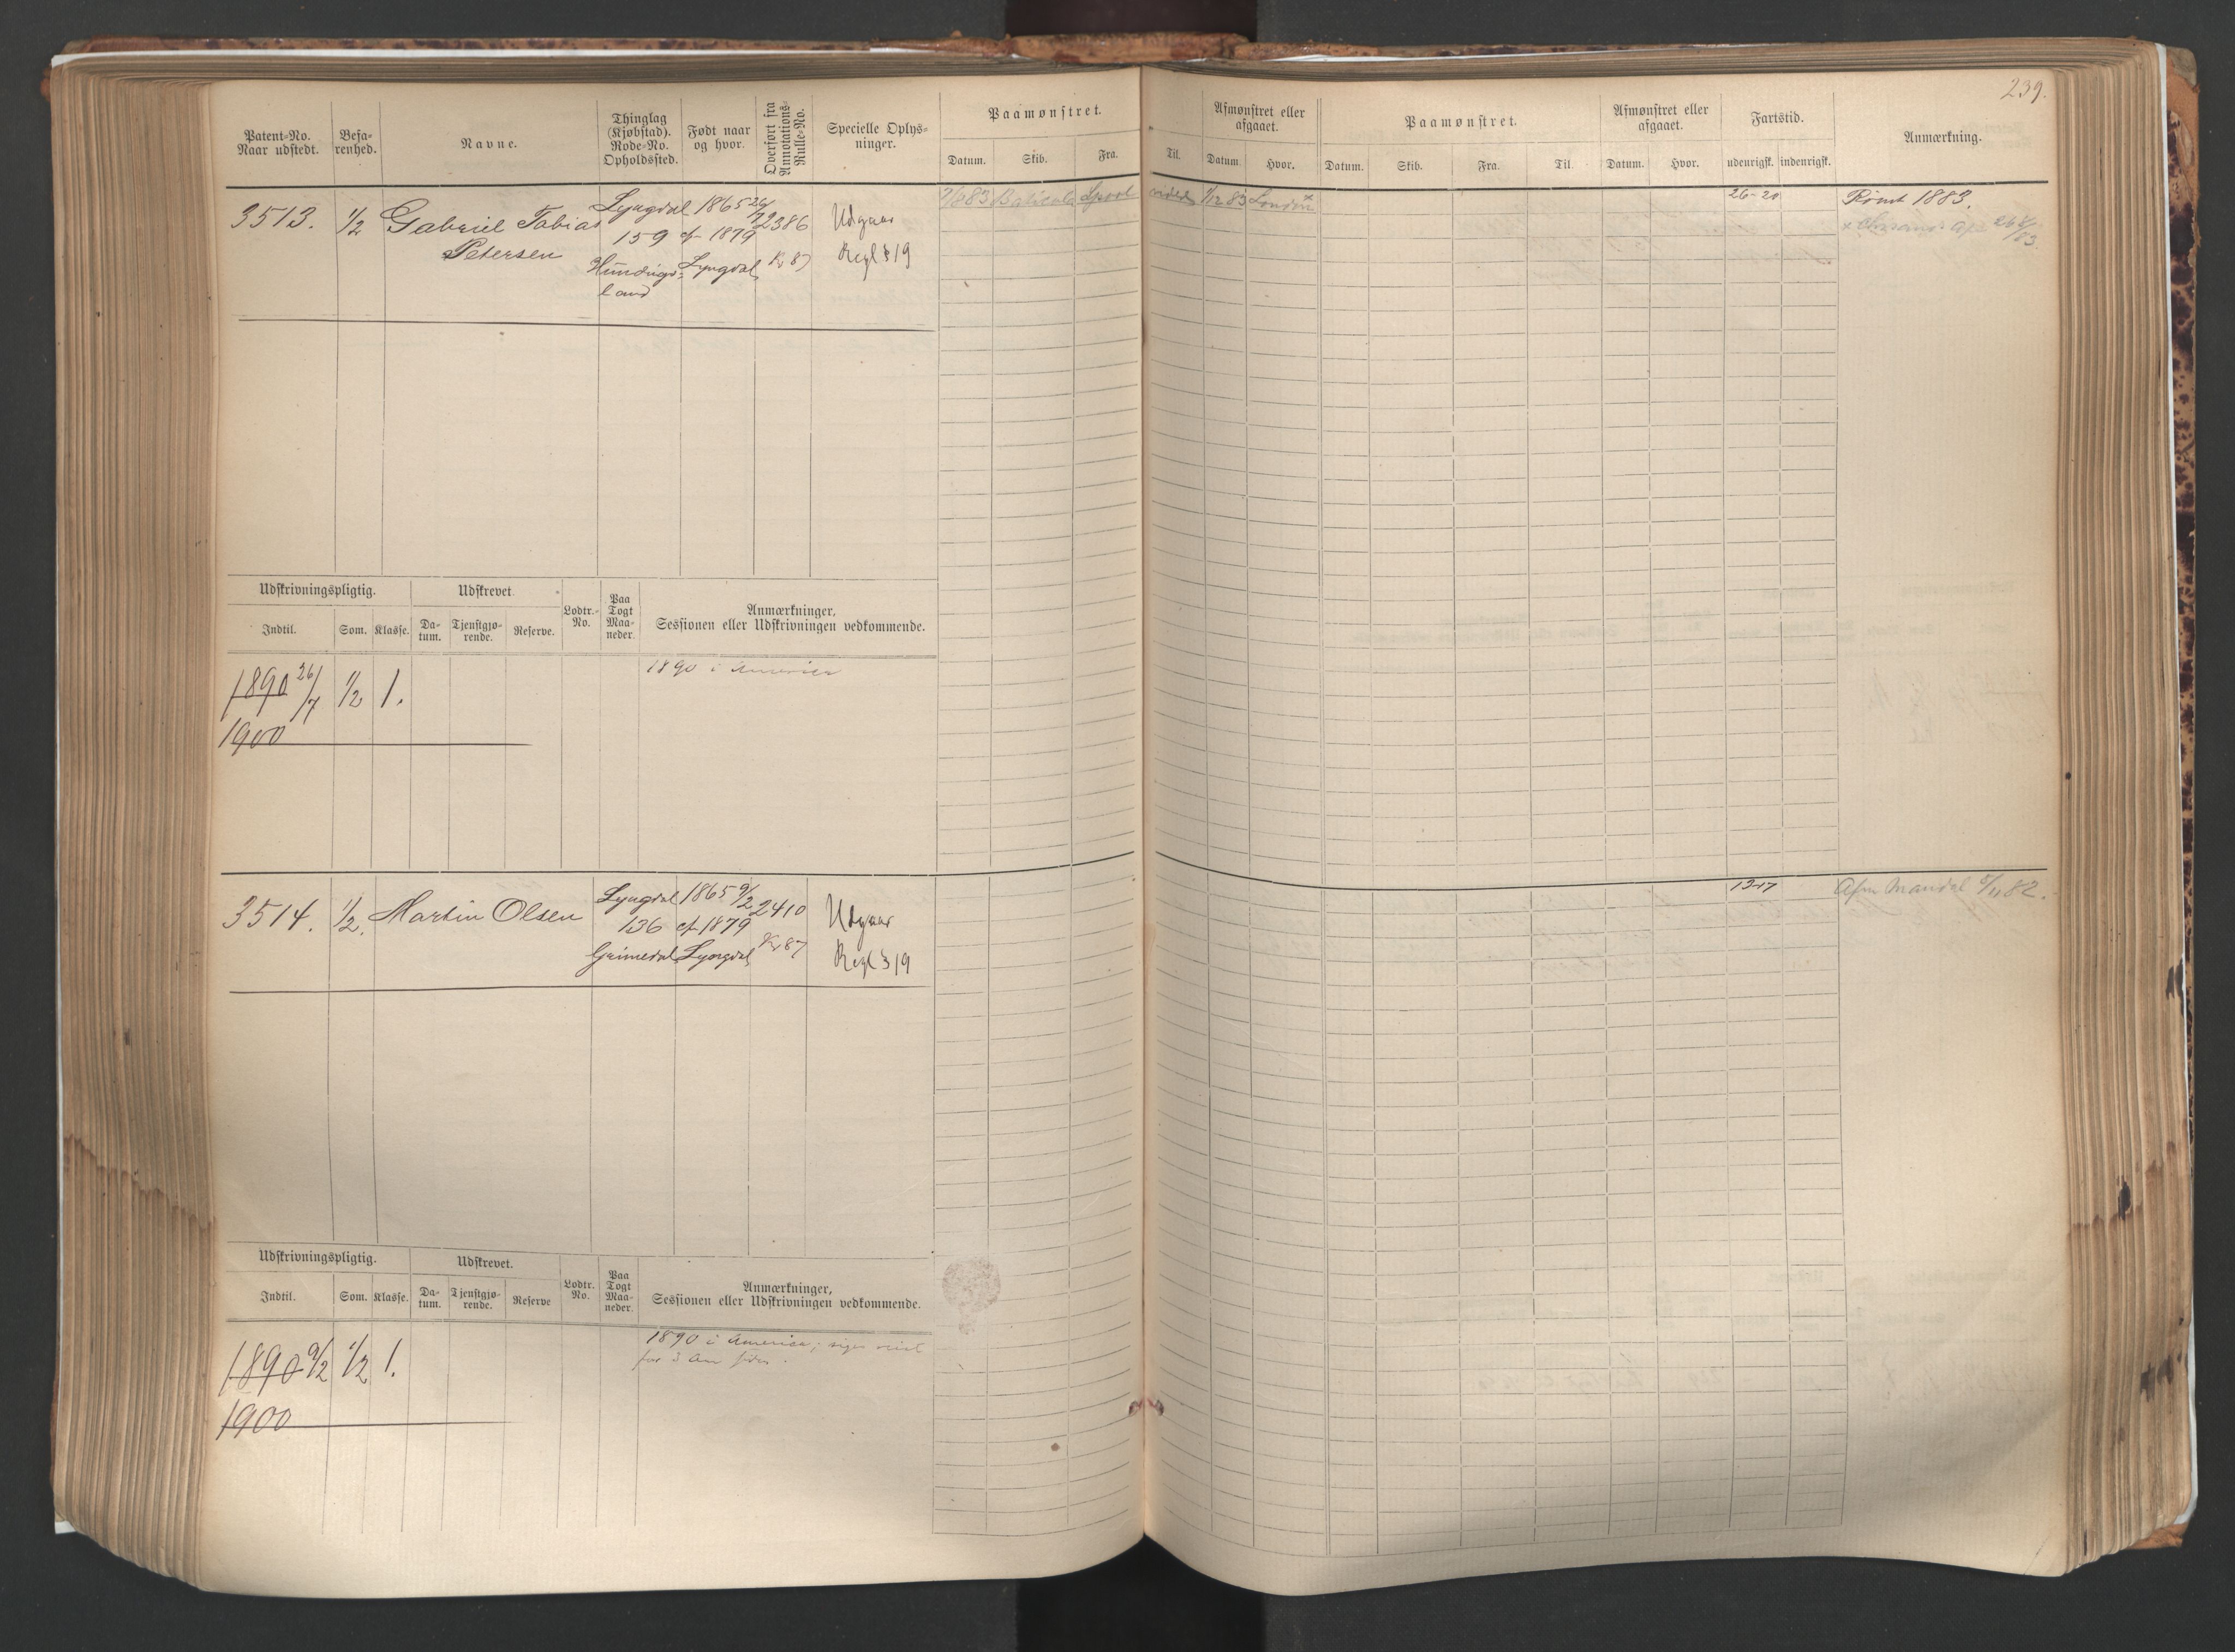 239.
Patent-No.
Naar udstedt.
Befa-
renhed.
Navne.
Thinglag
(Kjøbstad).
Rode-No.
Opholdssted.
Født naar
og hvor.
Overført fra
Annotations-
Rulle-No.
Specielle Oplys-
ninger.
Paamønstret.
Datum.
Skib.
Fra.
Til.
Afmønstret eller
afgaaet.
Datum.
Hvor.
Paamønstret.
Datum.
Skib.
Fra.
Til.
Afmønstret eller
afgaaet.
Datum.
Hvor.
Fartstid.
udenrigsk.
indenrigsk.
Anmærkning.
3513.
1/2
Gabriel Tobias
Petersen
Lyngdal
159
Hundings-
land
1865 26/7
cf 1879
Lyngdal
2386
Kr 87
Udgaar
Regl § 19
Lpool
1/12 83
London x
26-20
Rømt 1883.
Udskrivningspligtig.
Indtil.
Som.
Klasse.
Udskrevet.
Da-
tum.
Tjenstgjø-
rende.
Reserve.
Lodtr.-
No.
Paa
Togt
Maa-
neder.
Anmærkninger,
Sessionen eller Udskrivningen vedkommende.
1890 26/7
1/2
1.
1890 i America
1900
3514.
1/2.
Martin Olsen
Lyngdal
136
Grimedal
1865 9/2
cf 1879
Lyngdal
2410
Kr 87
Udgaar
Regl § 19
13-17
Afm Mandal 8/11 82.
Udskrivningspligtig.
Indtil.
Som.
Klasse.
Udskrevet.
Da-
tum.
Tjenstgjø-
rende.
Reserve
Lodtr.
No.
Paa
Togt
Maa-
neder.
Anmærkninger,
Sessionen eller Udskrivningen vedkommende.
1890 9/2
1/2
1.
1890 i America; siges reist
for 3 Aar siden.
1900